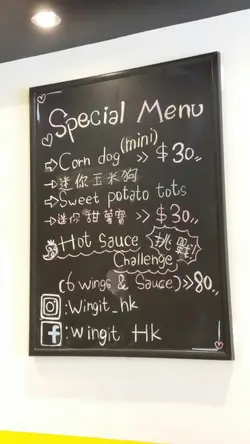 Special Menu
(mini)
Corn dog >> $30,,
迷你玉米狗
Sweet potato tots
迷你甜薯寶 >> $30,,
Hot Sauce 挑戰
Challenge
(6 wings & Sauce) >> 80,,
:Wingit_hk
:Wingit Hk